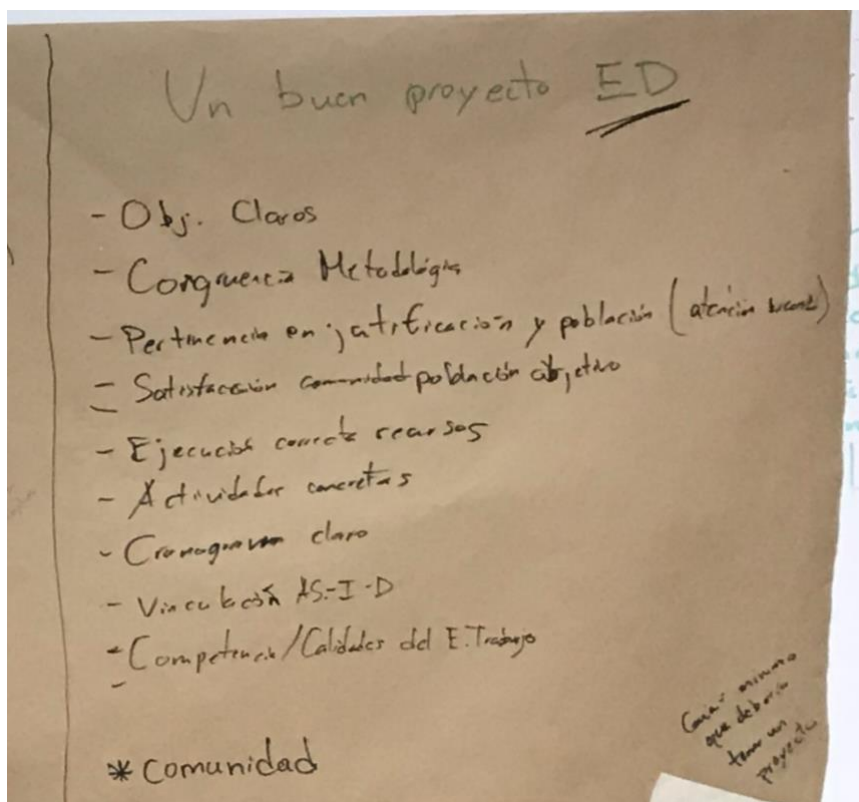 Un buen proyecto ED
- Obj. Claros
- Congruencia Metodológica
- Pertinencia en justificación y población (atención
- Satisfacción comunidad población objetivo
- Ejecución correcta recursos
- Actividades concretas
- Cronograma claro
- Vinculación AS-I-D
- Competencia/Calidades del E.Trabajo
* Comunidad
minimo
que debería
tener un
proyecto